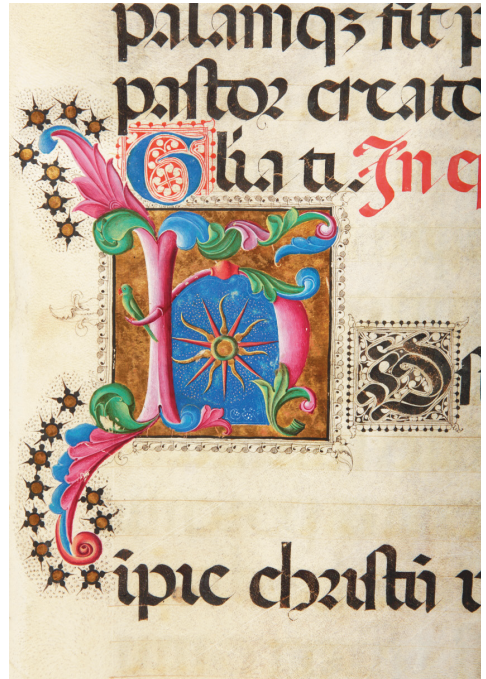 palamqꝫ fit p
pastor creato
Glia ti. In ep
hOs
ipie christū u